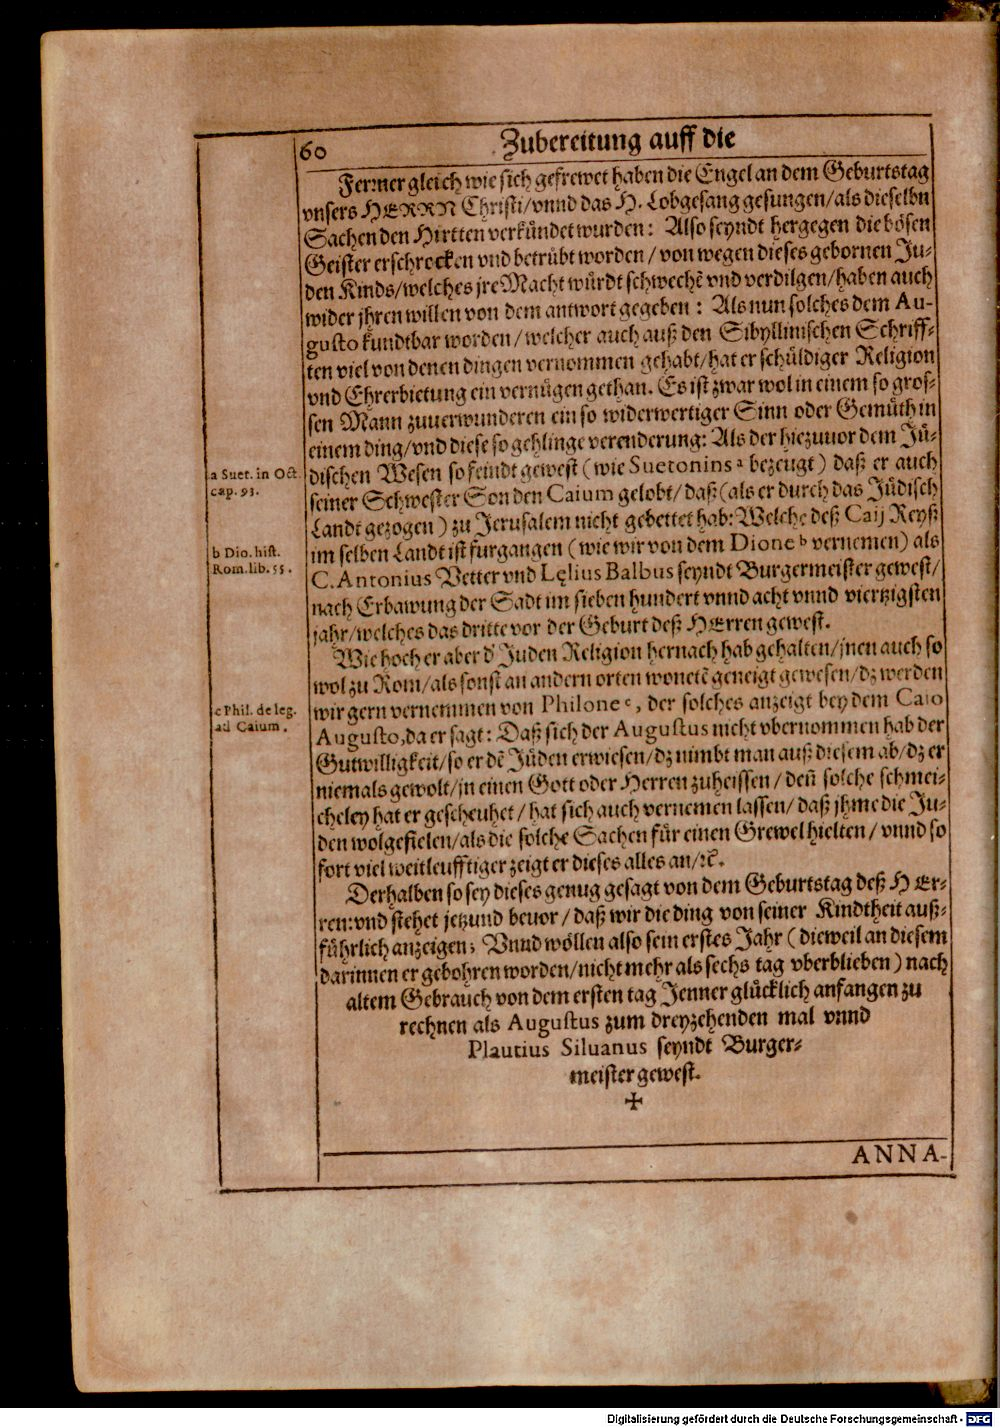 60
Zubereitung auff die
Ferner gleich wie sich gefrewet haben die Engel an dem Geburtstag
vnsers HERRN Christi/vnnd das H. Lobgesang gesungen/als dieselbn
Sachen den Hirtten verkündet wurden: Also seyndt hergegen die bösen
Geister erschrocken vnd betrübt worden/von wegen dieses gebornen Ju-
den Kinds/welches jre Macht würdt schwechẽ vnd verdilgen/haben auch
wider jhren willen von dem antwort gegeben: Als nun solches dem Au-
gusto kundtbar worden/welcher auch auß den Sibyllinischen Schriff-
ten viel von denen dingen vernommen gehabt/hat er schüldiger Religion
vnd Ehrerbietung ein vernügen gethan. Es ist zwar wol in einem so gros-
sen Mann zuuerwunderen ein so widerwertiger Sinn oder Gemüth in
einem ding/vnd diese so gehlinge verenderung: Als der hiezuuor dem Jü-
dischen Wesen so feindt gewest (wie Suetonins a bezeugt) daß er auch
seiner Schwester Son den Caium gelobt/daß (als er durch das Jüdisch
Landt gezogen) zu Jerusalem nicht gebettet hab: Welche deß Caij Reyß
im selben Landt ist furgangen (wie wir von dem Dione b vernemen) als
C. Antonius Vetter vnd Lęlius Balbus seyndt Burgermeister gewest/
nach Erbawung der Sadt im sieben hundert vnnd acht vnnd viertzigsten
jahr/welches das dritte vor der Geburt deß HErren gewest.
Wie hoch er aber d' Juden Religion hernach hab gehalten/jnen auch so
wol zu Rom/als sonst an andern orten wonetẽ geneigt gewesen/dz werden
wir gern vernemmen von Philone c, der solches anzeigt bey dem Caio
Augusto, da er sagt: Daß sich der Augustus nicht vbernommen hab der
Gutwilligkeit/so er dẽ Jüden erwiesen/dz nimbt man auß diesem ab/dz er
niemals gewolt/jn einen Gott oder Herren zuheissen/deñ solche schmei-
cheley hat er gescheuhet/hat sich auch vernemen lassen/daß jhme die Ju-
den wolgefielen/als die solche Sachen für einen Grewel hielten/vnnd so
fort viel weitleufftiger zeigt er dieses alles an/ꝛc.
Derhalben so sey dieses genug gesagt von dem Geburtstag deß HEr-
ren: vnd stehet jetzund beuor/daß wir die ding von seiner Kindtheit auß-
führlich anzeigen; Vnnd wöllen also sein erstes Jahr (dieweil an diesem
darinnen er gebohren worden/nicht mehr als sechs tag vberblieben) nach
altem Gebrauch von dem ersten tag Jenner glücklich anfangen zu
rechnen als Augustus zum dreyzehenden mal vnnd
Plautius Siluanus seyndt Burger-
meister gewest.
✠
ANNA-
a Suet. in Oct.
cap. 93.
b Dio. hist.
Rom. lib. 55.
c Phil. de leg.
ad Caium.
Digitalisierung gefördert durch die Deutsche Forschungsgemeinschaft - DFG